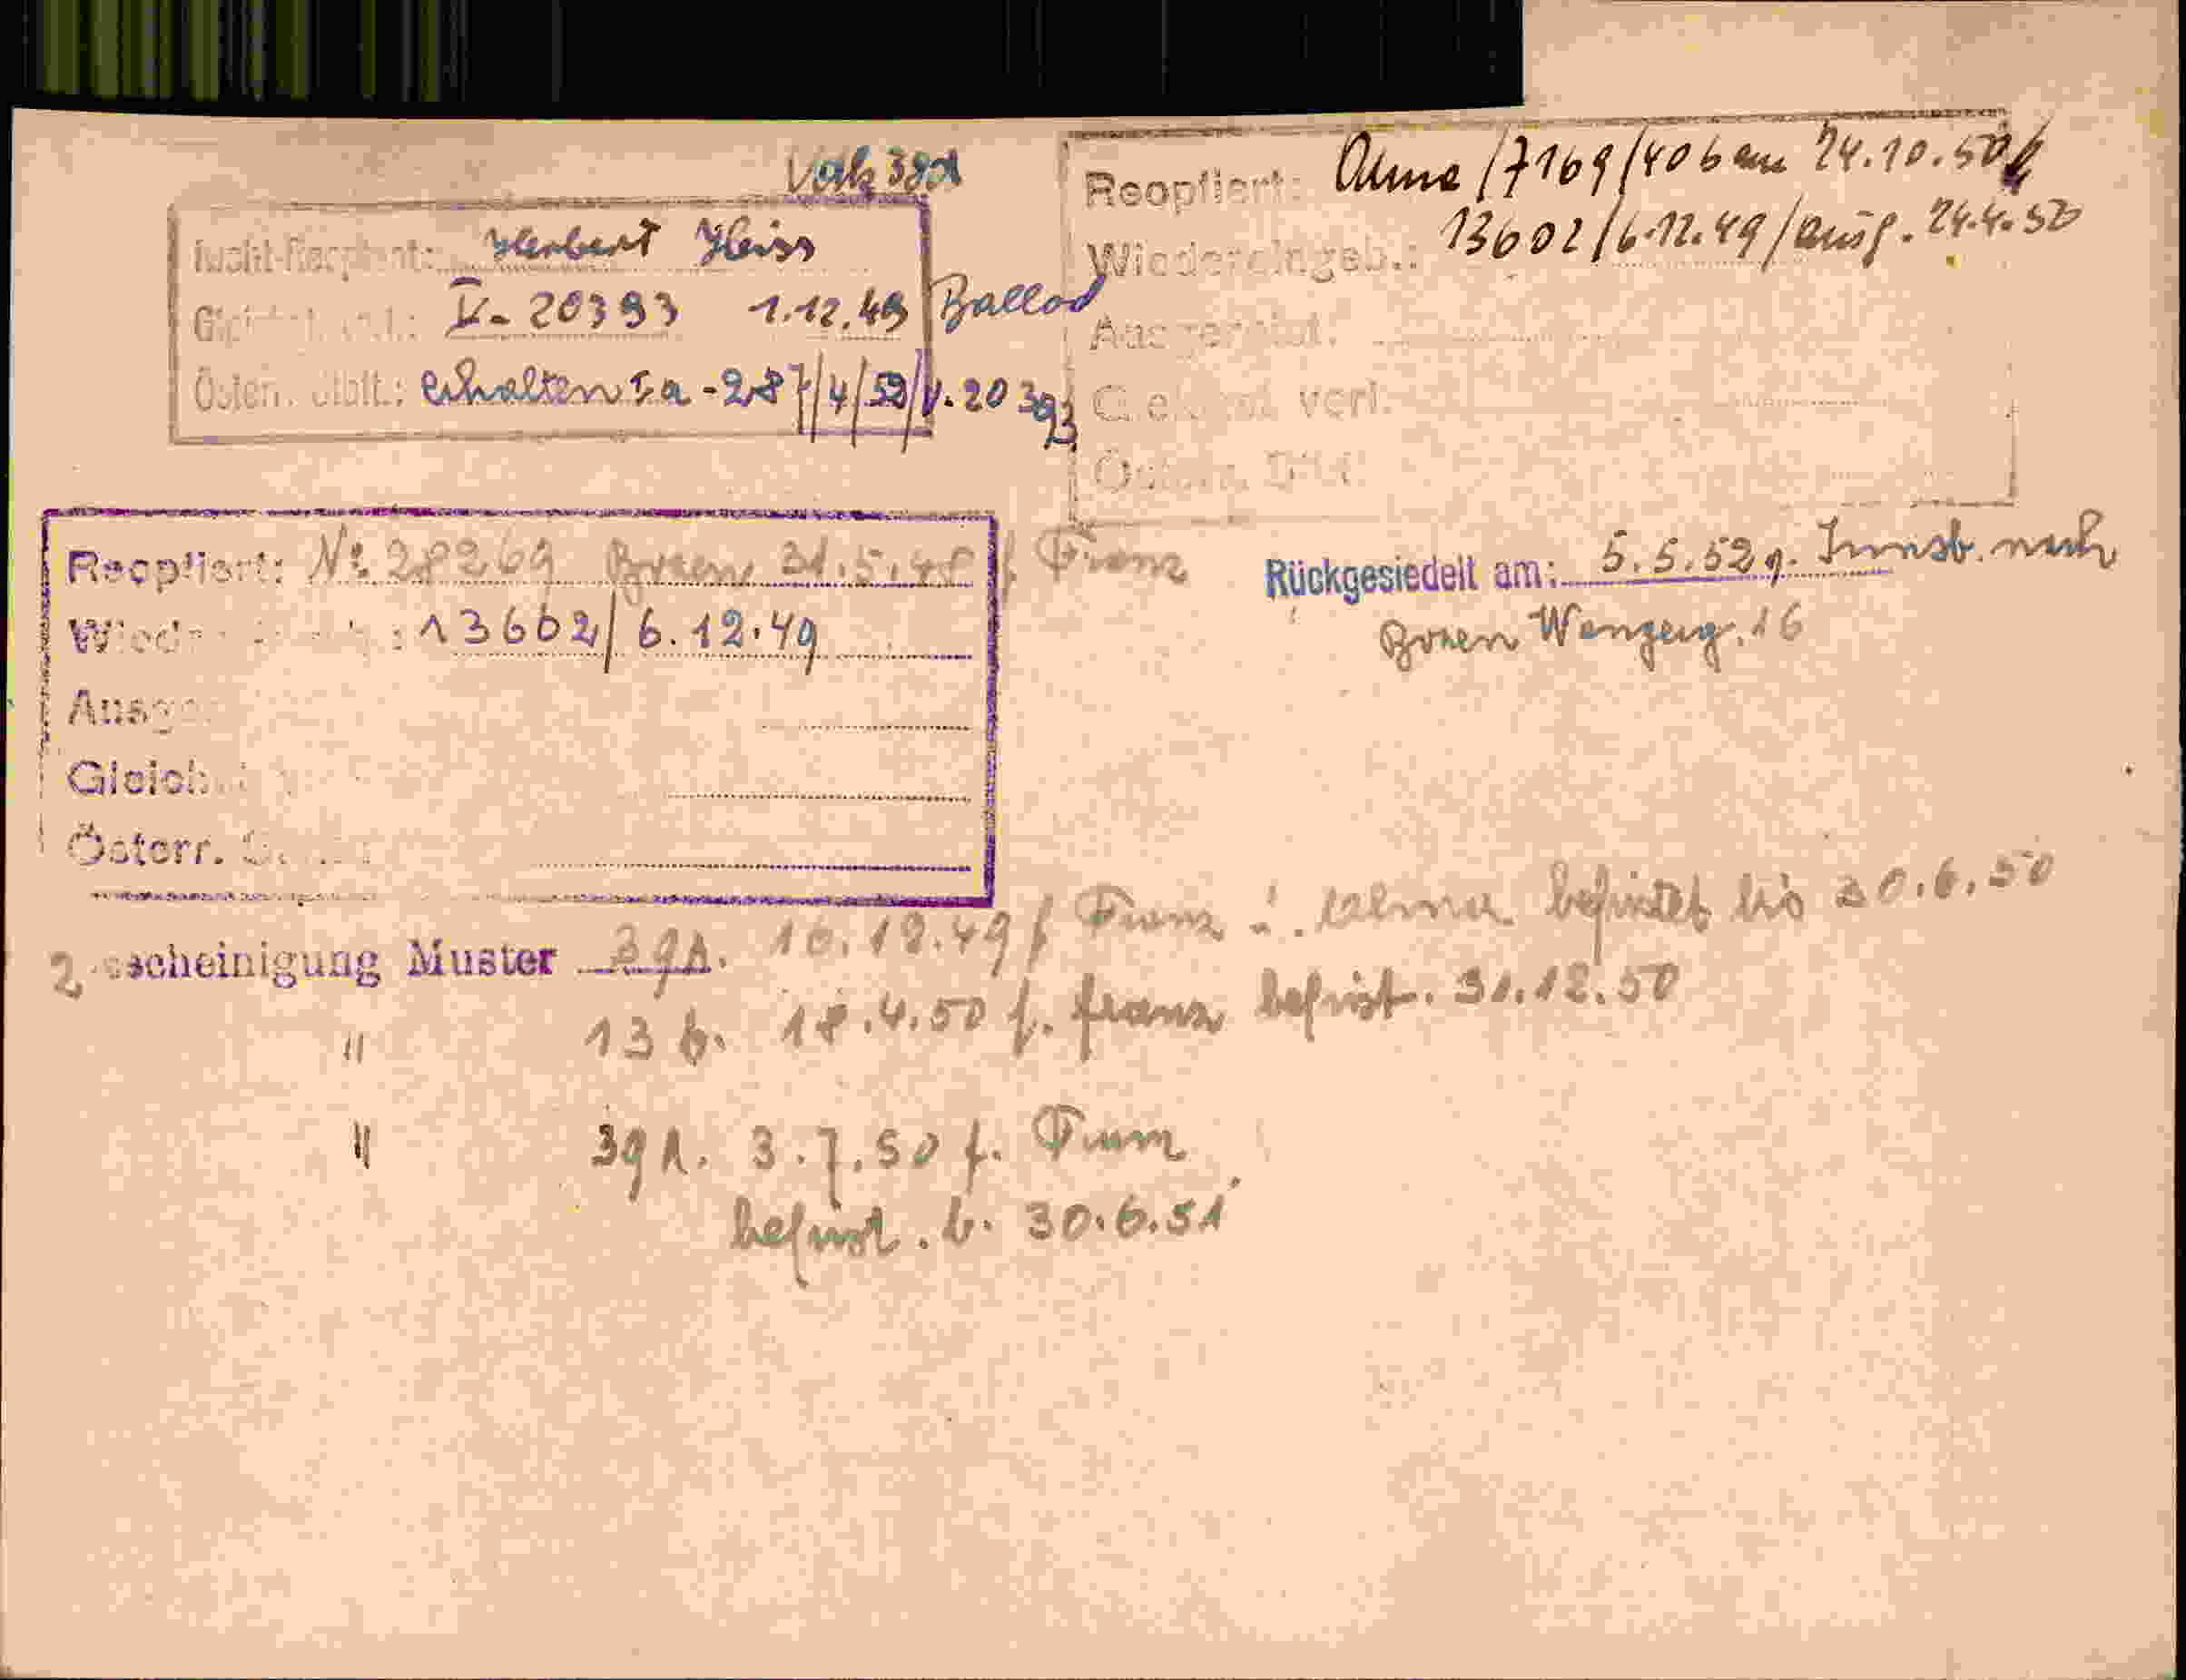 Herbert Heiss
V- 20393 1.12.49 Ballod
Österr. Stblt.: erhalten Ia-287/4/52/V.20393
Reoptiert: Alma /7169/406 am 24.10.50
Wiedereingeb.: 13602/6.12.49/ausg. 24.4.50
Gleichst. verl.
Österr.
Reoptiert: No 28269 Bozen 31.5.48 f Franz
13602/6.12.49
Österr.
Rückgesiedelt am: 5.5.52 g. Innsb. nach
Bozen Wangerg. 16
2 scheinigung Muster 39A. 16.12.49 f Franz u. Alma befristet bis 30.6.50
" 13 b. 18.4.50 f. Franz befrist. 31.12.50
" 39A. 3.7.50 f. Franz
befrist. b. 30.6.51